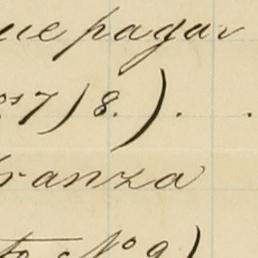 ue pagar
os 7) 8.) . .
ranza
to Nº 9)